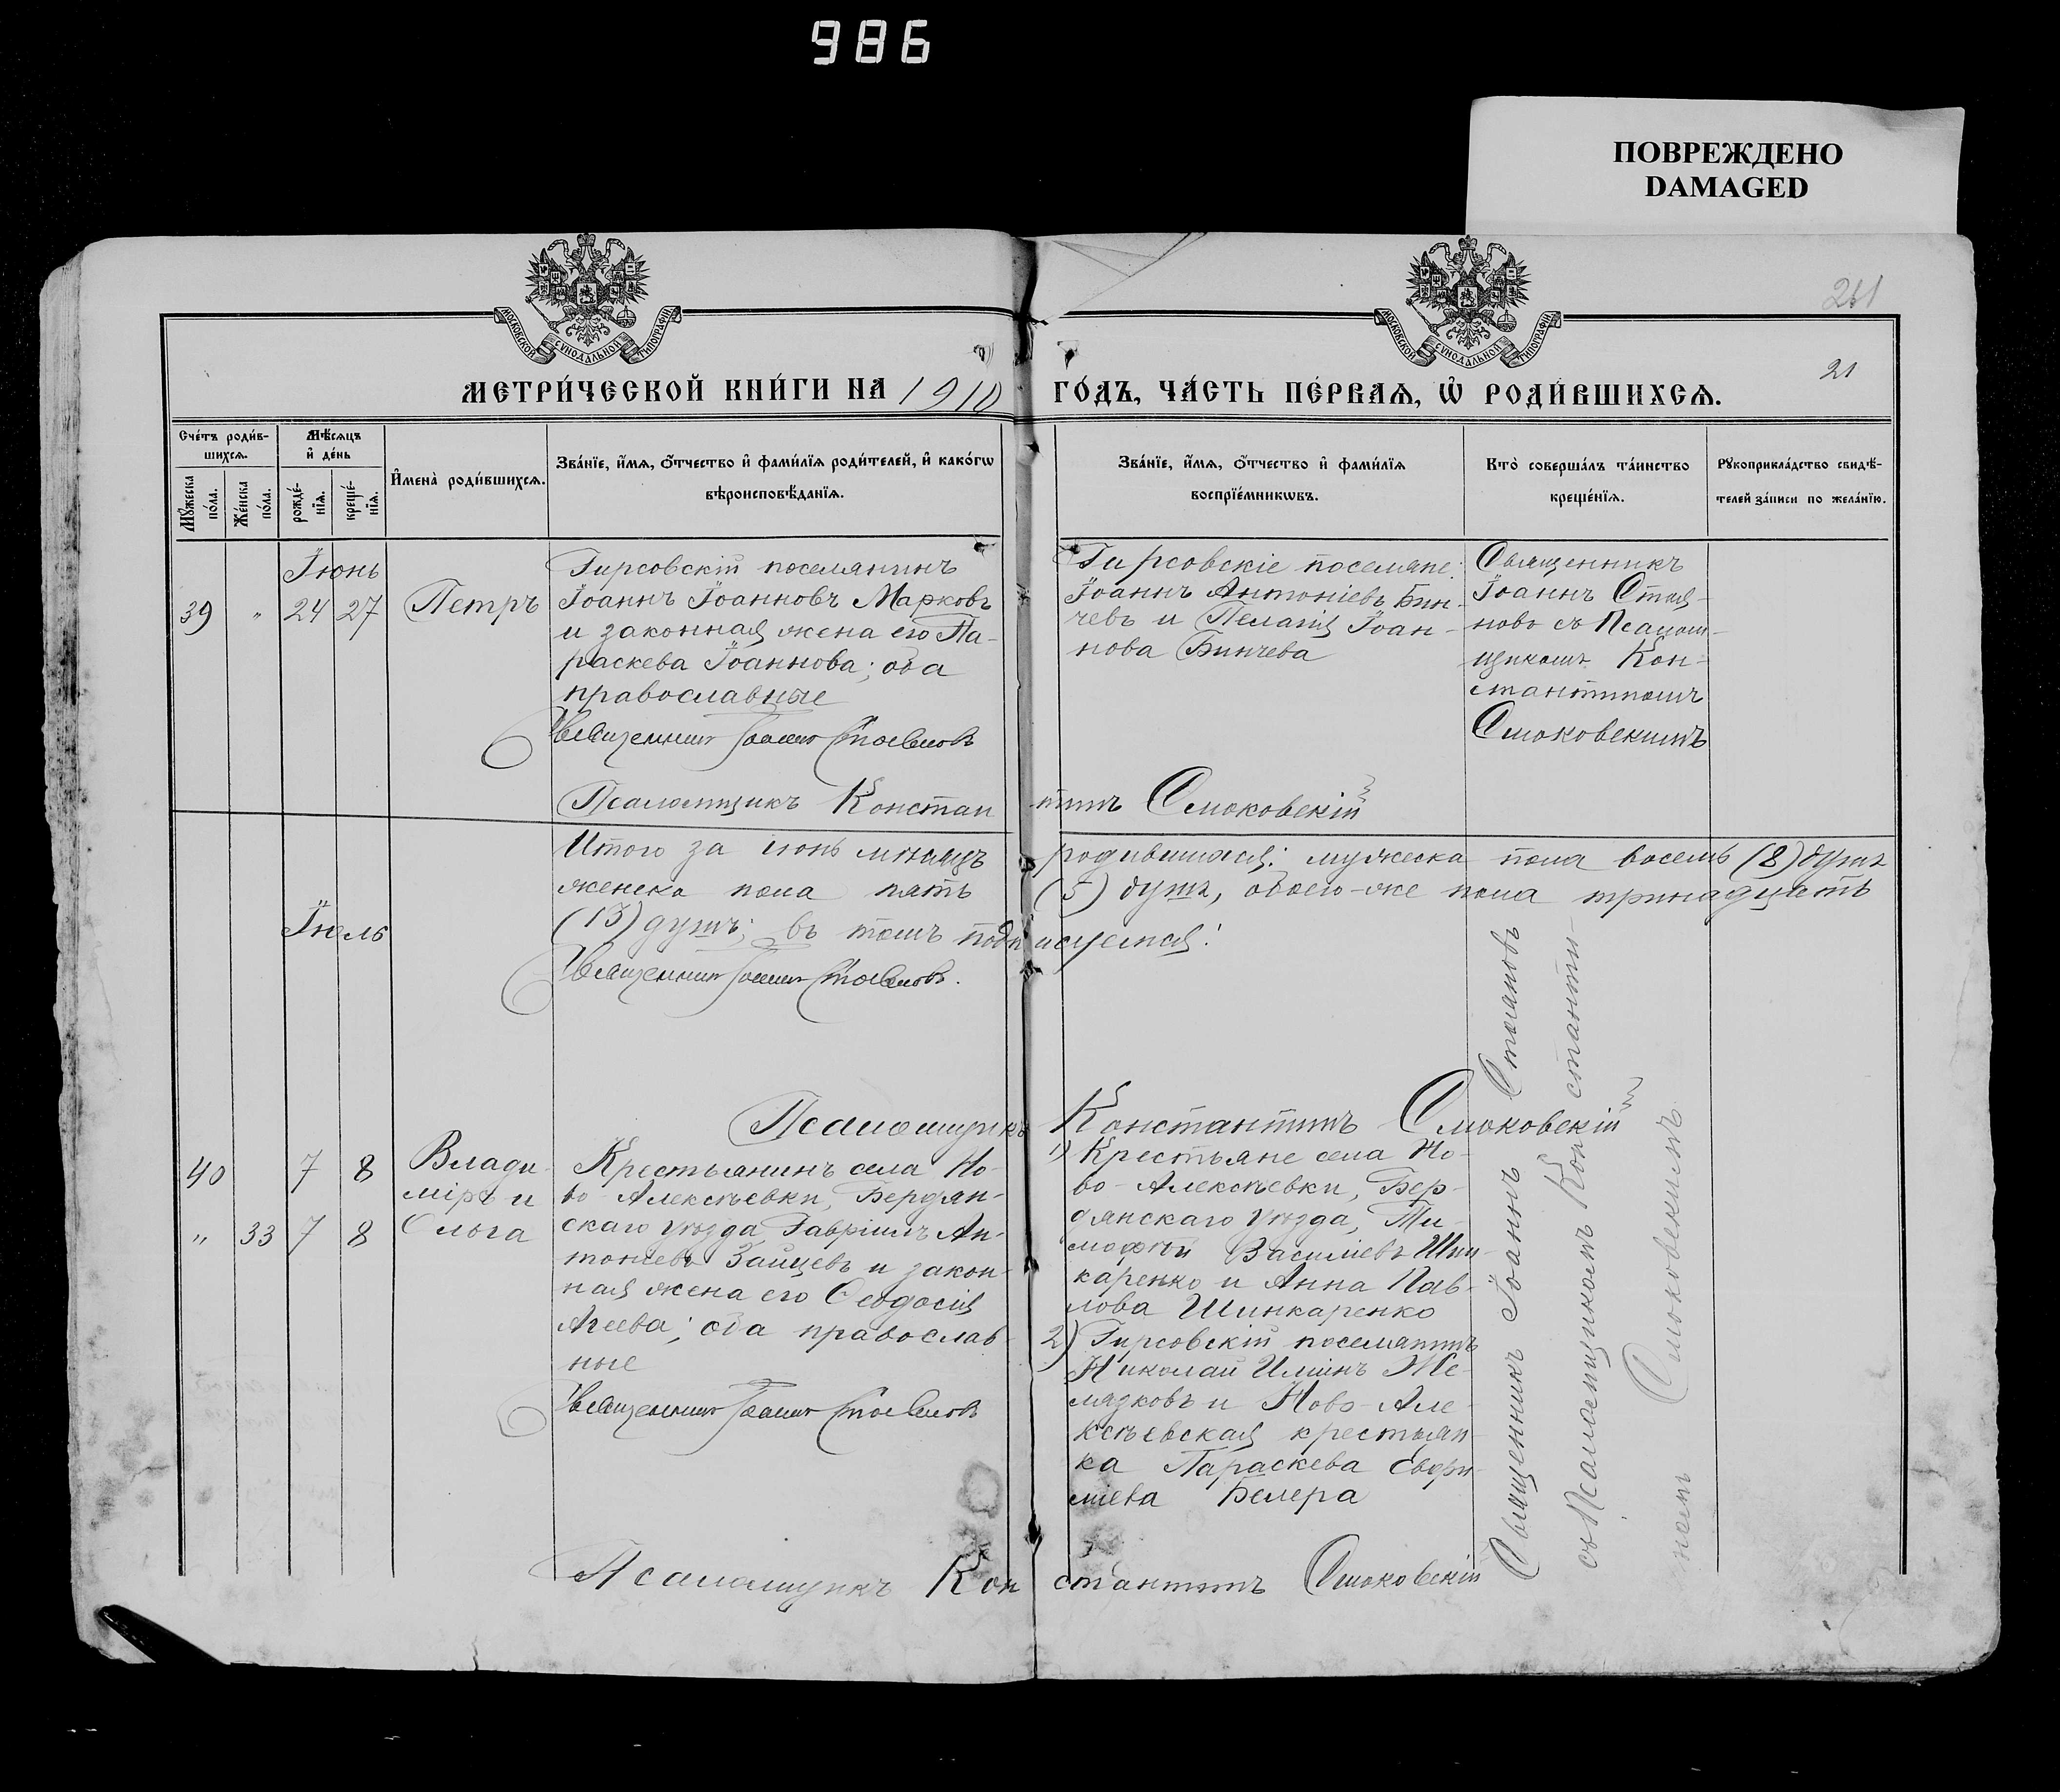 986
ПОВРЕЖДЕНО
DAMAGED
261
21
МОСКОВСКОЙ СѴНОДАЛЬНОЙ ТИПОГРАФІИ
МОСКОВСКОЙ СѴНОДАЛЬНОЙ ТИПОГРАФІИ
МЕТРИ́ЧЕСКОЙ КНИ́ГИ НА 1910 ГО́ДЪ, ЧА́СТЬ ПЕ́РВАѦ, Ѿ РОДИ́ВШИХСѦ.
Сче́тъ роди́в-
шихсѧ.
Мꙋ́жеска по́ла.
Же́нска по́ла.
Мѣ́сѧцъ
и҆ де́нь
рожде́-
нїѧ.
креще́-
нїѧ.
И҆мена̀ роди́вшихсѧ.
Зва́нїе, и҆́мѧ, о҆́тчество и҆ фами́лїѧ роди́телей, и҆ како́гѡ
вѣроисповѣ́данїѧ.
Зва́нїе, и҆́мѧ, о҆́тчество и҆ фами́лїѧ
воспрїе́мникѡвъ.
Кто̀ соверша́лъ та́инство
креще́нїѧ.
Рꙋкоприкла́дство свидѣ́-
телей за́писи по жела́нїю.
Іюнь
39 " 24 27 Петръ
Гирсовскій поселянинъ
Іоаннъ Іоанновъ Марковъ
и законная жена его Па-
раскева Іоаннова; оба
православные
Священникъ Іоаннъ Стояновъ
Псаломщикъ Константинъ Смоковскій
Гирсовскіе поселяне:
Іоаннъ Антоніевъ Бин-
чевъ и Пелагія Іоан-
нова Бинчева
Священникъ
Іоаннъ Стоя-
новъ съ Псалом-
щикомъ Кон-
стантиномъ
Смоковскимъ
Итого за іюнь мѣсяцъ родившихся: мужеска пола восемь (8) душъ
женска пола пять (5) душъ, обоего-же пола тринадцать
(13) душъ; въ томъ подписуемся:
Священникъ Іоаннъ Стояновъ.
Іюль
Псаломщикъ Константинъ Смоковскій
40 7 8 Влади-
міръ и
" 33 7 8 Ольга
Крестьянинъ села Но-
во-Алексѣевки, Бердян-
скаго уѣзда, Гавріилъ Ан-
тоніевъ Зайцевъ и закон-
ная жена его Ѳеодосія
Агеева; оба православ-
ные
Священникъ Іоаннъ Стояновъ
1) Крестьяне села Но-
во-Алексѣевки, Бер-
дянскаго уѣзда, Ти-
мофей Василіевъ Шин-
каренко и Анна Пав-
лова Шинкаренко
2) Гирсовскій поселянинъ
Николай Иліинъ Же-
лязковъ и Ново-Але-
ксѣевская крестьян-
ка Параскева
Белера
Священникъ Іоаннъ Стояновъ
съ Псаломщикомъ Константи-
номъ Смоковскимъ
Псаломщикъ Константинъ Смоковскій